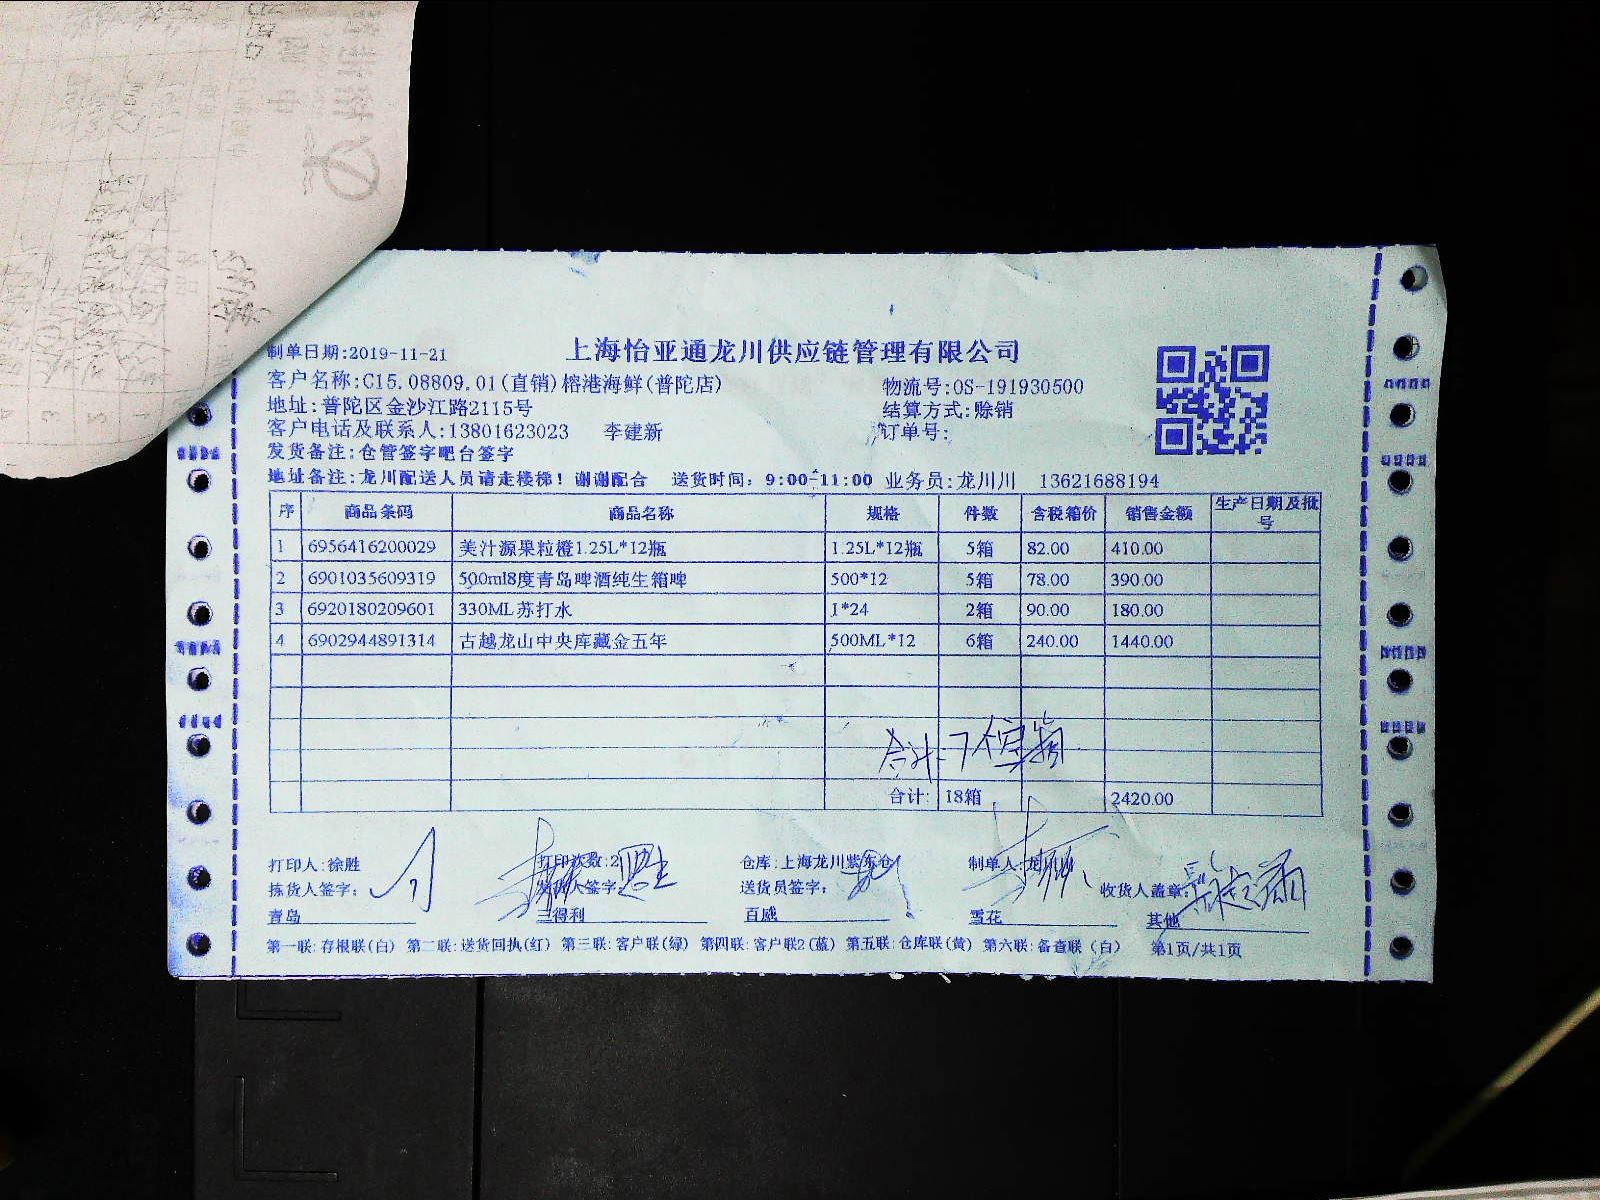 制单日期:2019-11-21
上海怡亚通龙川供应链管理有限公司
客户名称:C15.08809.01(直销)榕港海鲜(普陀店) 物流号:OS-191930500
地址:普陀区金沙江路2115号 结算方式:赊销
客户电话及联系人:13801623023 李建新 订单号:
发货备注:仓管签字吧台签字
地址备注:龙川配送人员请走楼梯!谢谢配合 送货时间:9:00-11:00 业务员:龙川川 13621688194
序 商品条码 商品名称 规格 件数 含税箱价 销售金额 生产日期及批号
1 6956416200029 美汁源果粒橙1.25L*12瓶 1.25L*12瓶 5箱 82.00 410.00
2 6901035609319 500ml8度青岛啤酒纯生箱啤 500*12 5箱 78.00 390.00
3 6920180209601 330ML苏打水 1*24 2箱 90.00 180.00
4 6902944891314 古越龙山中央库藏金五年 500ML*12 6箱 240.00 1440.00
合计:
合计: 18箱 2420.00
打印人:徐胜 打印次数:2 仓库:上海龙川紫东仓 制单人:龙川川
拣货人签字: 发货人签字: 送货员签字: 收货人盖章:
青岛 三得利 百威 雪花 其他
第一联:存根联(白) 第二联:送货回执(红) 第三联:客户联(绿) 第四联:客户联2(蓝) 第五联:仓库联(黄) 第六联:备查联(白) 第1页/共1页